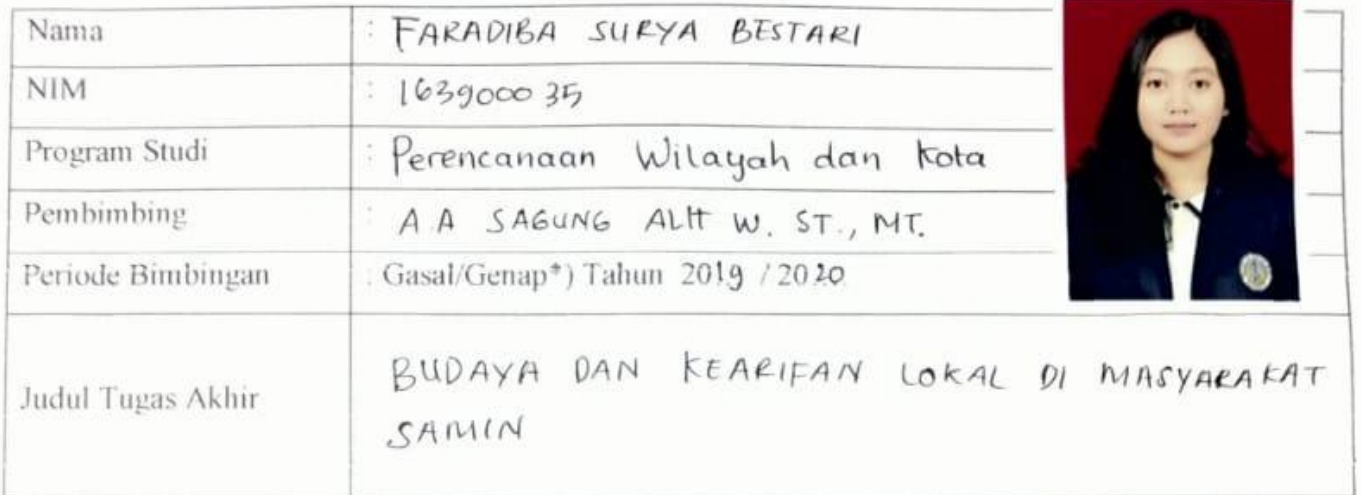 Nama : FARADIBA SURYA BESTARI
NIM : 163900035
Program Studi : Perencanaan Wilayah dan Kota
Pembimbing : A.A SAGUNG ALIT W. ST., MT.
Periode Bimbingan : Gasal/Genap*) Tahun 2019 / 2020
Judul Tugas Akhir BUDAYA DAN KEARIFAN LOKAL DI MASYARAKAT
SAMIN